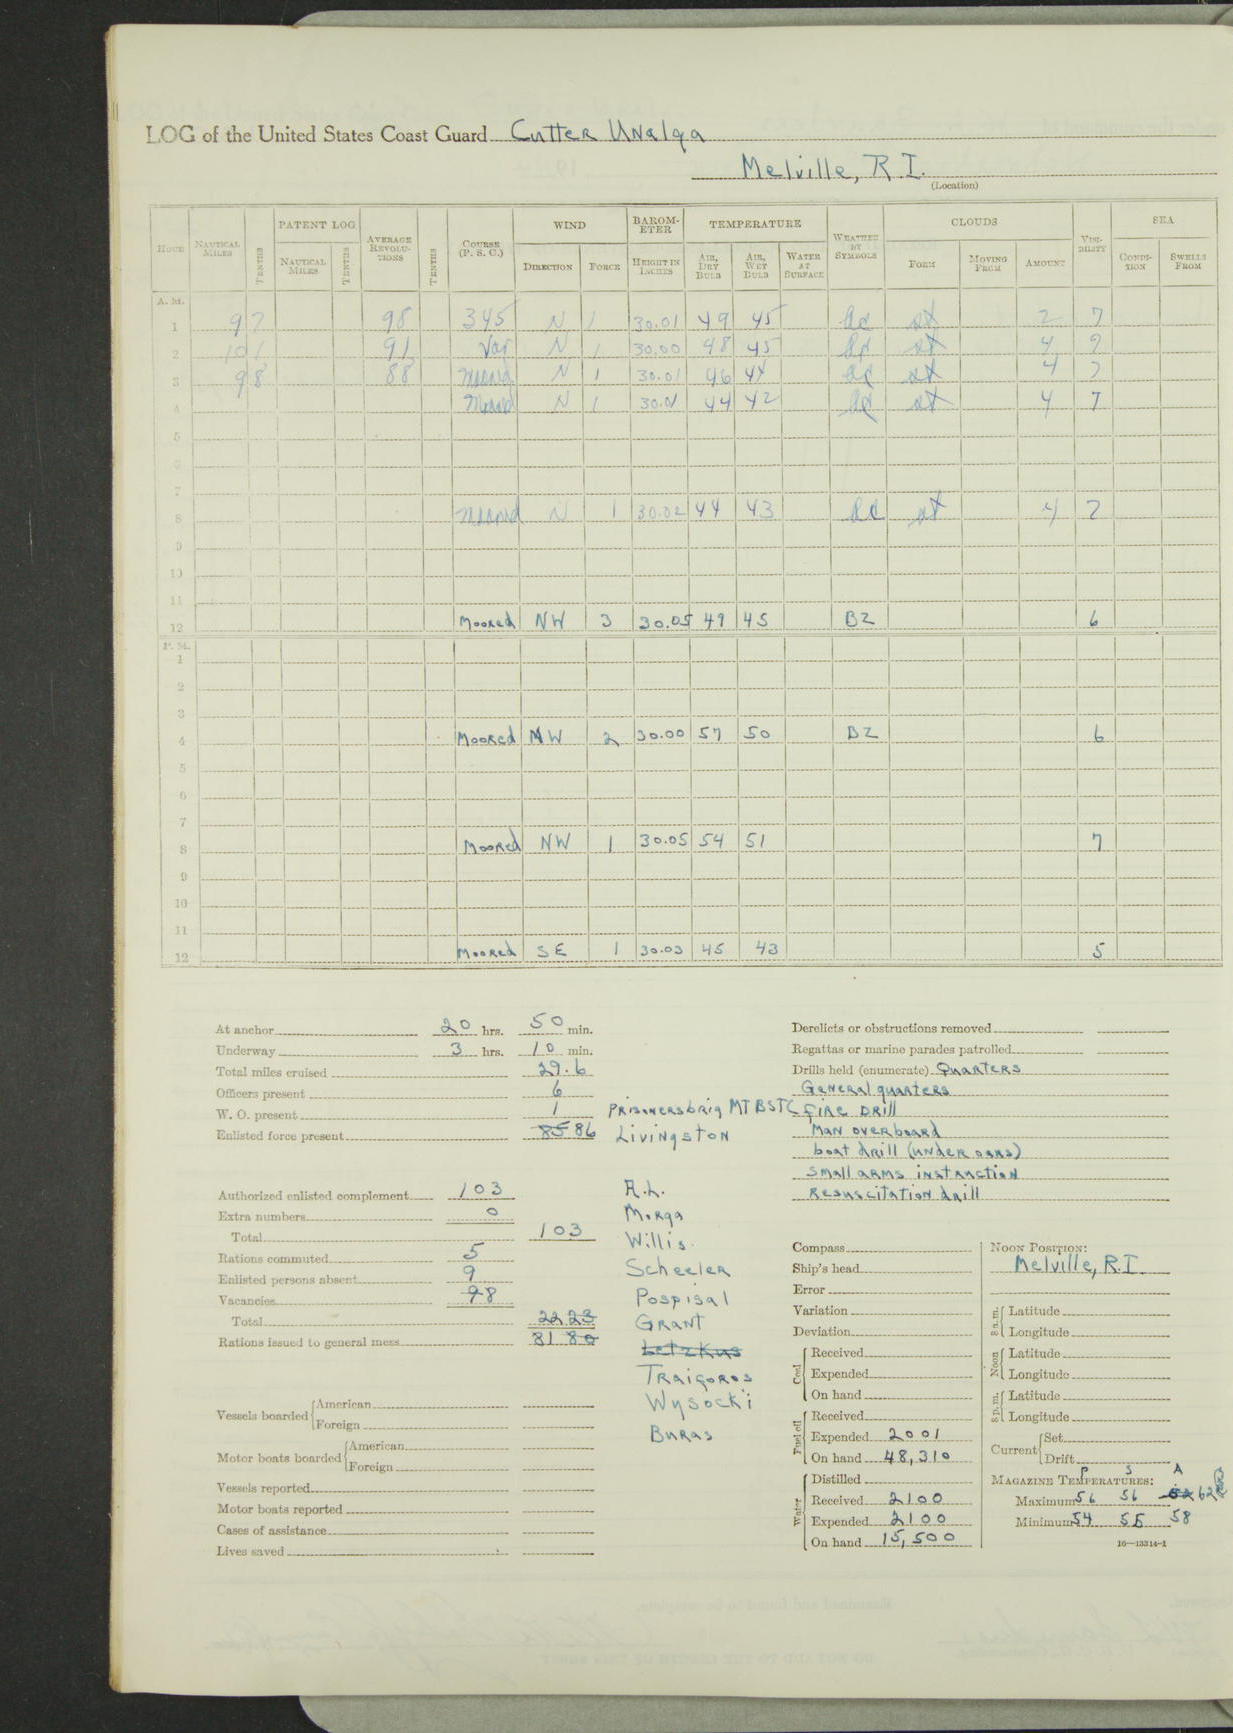 LOG of the United States Coast Guard Cutter Unalga
Melville, R.I.
(Location)
HOUR NAUTICAL MILES TENTHS PATENT LOG NAUTICAL MILES TENTHS AVERAGE REVOLU-TIONS TENTHS COURSE (P. S. C.) WIND DIRECTION FORCE BAROM-ETER HEIGHT IN INCHES TEMPERATURE AIR, DRY BULB AIR, WET BULB WATER AT SURFACE WEATHER BY SYMBOLS CLOUDS FORM MOVING FROM AMOUNT VISI-BILITY SEA CONDI-TION SWELLS FROM
A. M.
1 9 7 98 345 N 1 30.01 49 45 st 2 7
2 10 1 91 Var N 1 30.00 48 45 st 4 7
3 9 8 88 Moored N 1 30.01 46 44 st 4 7
4 Moored N 1 44 42 st 4 7
5
6
7
8 Moored N 1 30.02 44 43 st 4 7
9
10
11
12 Moored NW 3 30.05 49 45 BZ 6
P. M.
1
2
3
4 Moored NW 2 30.00 57 50 BZ 6
5
6
7
8 Moored NW 1 30.05 54 51 7
9
10
11
12 Moored SE 1 30.03 45 43 5
At anchor 20 hrs. 50 min.
Underway 3 hrs. 10 min.
Total miles cruised 29.6
Officers present 6
W. O. present 1
Enlisted force present 85 86
Prisoners brig MTBSTC
Livingston
Authorized enlisted complement 103
Extra numbers 0
Total 103
Rations commuted 5
Enlisted persons absent 9
Vacancies 98
Total 22 23
Rations issued to general mess 81 80
A.L.
Morga
Willis
Scheeler
Pospisal
Grant
Letzkus
Traigoros
Wysocki
Buras
Vessels boarded American
Foreign
Motor boats boarded American
Foreign
Vessels reported
Motor boats reported
Cases of assistance
Lives saved
Derelicts or obstructions removed
Regattas or marine parades patrolled
Drills held (enumerate) Quarters
General quarters
Fire Drill
Man overboard
boat drill (under oars)
small arms instruction
Resuscitation drill
Compass
Ship's head
Error
Variation
Deviation
Coal Received
Expended
On hand
Fuel oil Received
Expended 2001
On hand 48,310
Water Distilled
Received 2100
Expended 2100
On hand 15,500
NOON POSITION:
Melville, R.I.
8 a. m. Latitude
Longitude
Noon Latitude
Longitude
8 p. m. Latitude
Longitude
Current Set
Drift
P S A
MAGAZINE TEMPERATURES:
Maximum 56 56 62
Minimum 54 55 58
16—13314-1